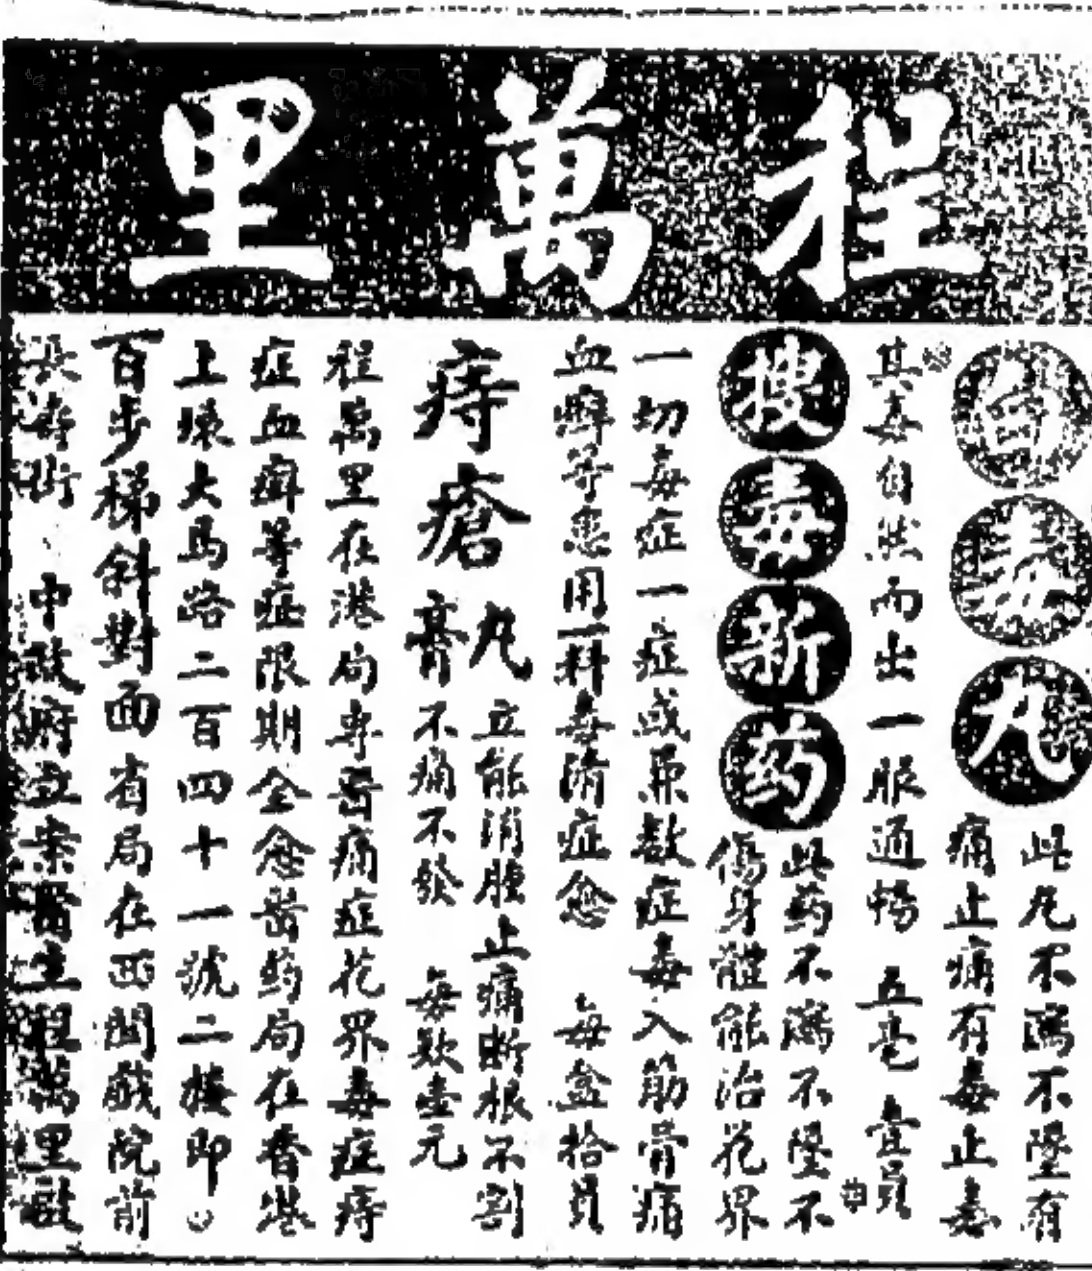 程萬里
白毒丸
此丸不瀉不墜有
痛止痛有毒止毒
其毒自然而出一服通暢 五毫 壹員
搜毒新药
此药不瀉不墜不
傷身體能治花界
一切毒症一症或兼数症毒入筋骨痛
血癬等患用一料毒清症愈 每盒拾員
痔瘡
丸立能消腫止痛断根不割
膏不痛不發 每欵壹元
程萬里在港局专醫痛症花界毒症痔
症血癬等症限期全愈醫药局在香港
上環大馬路二百四十一號二楼即
百步梯斜對面省局在西關戲院前
長壽街 中敌府立案醫生程萬里啟